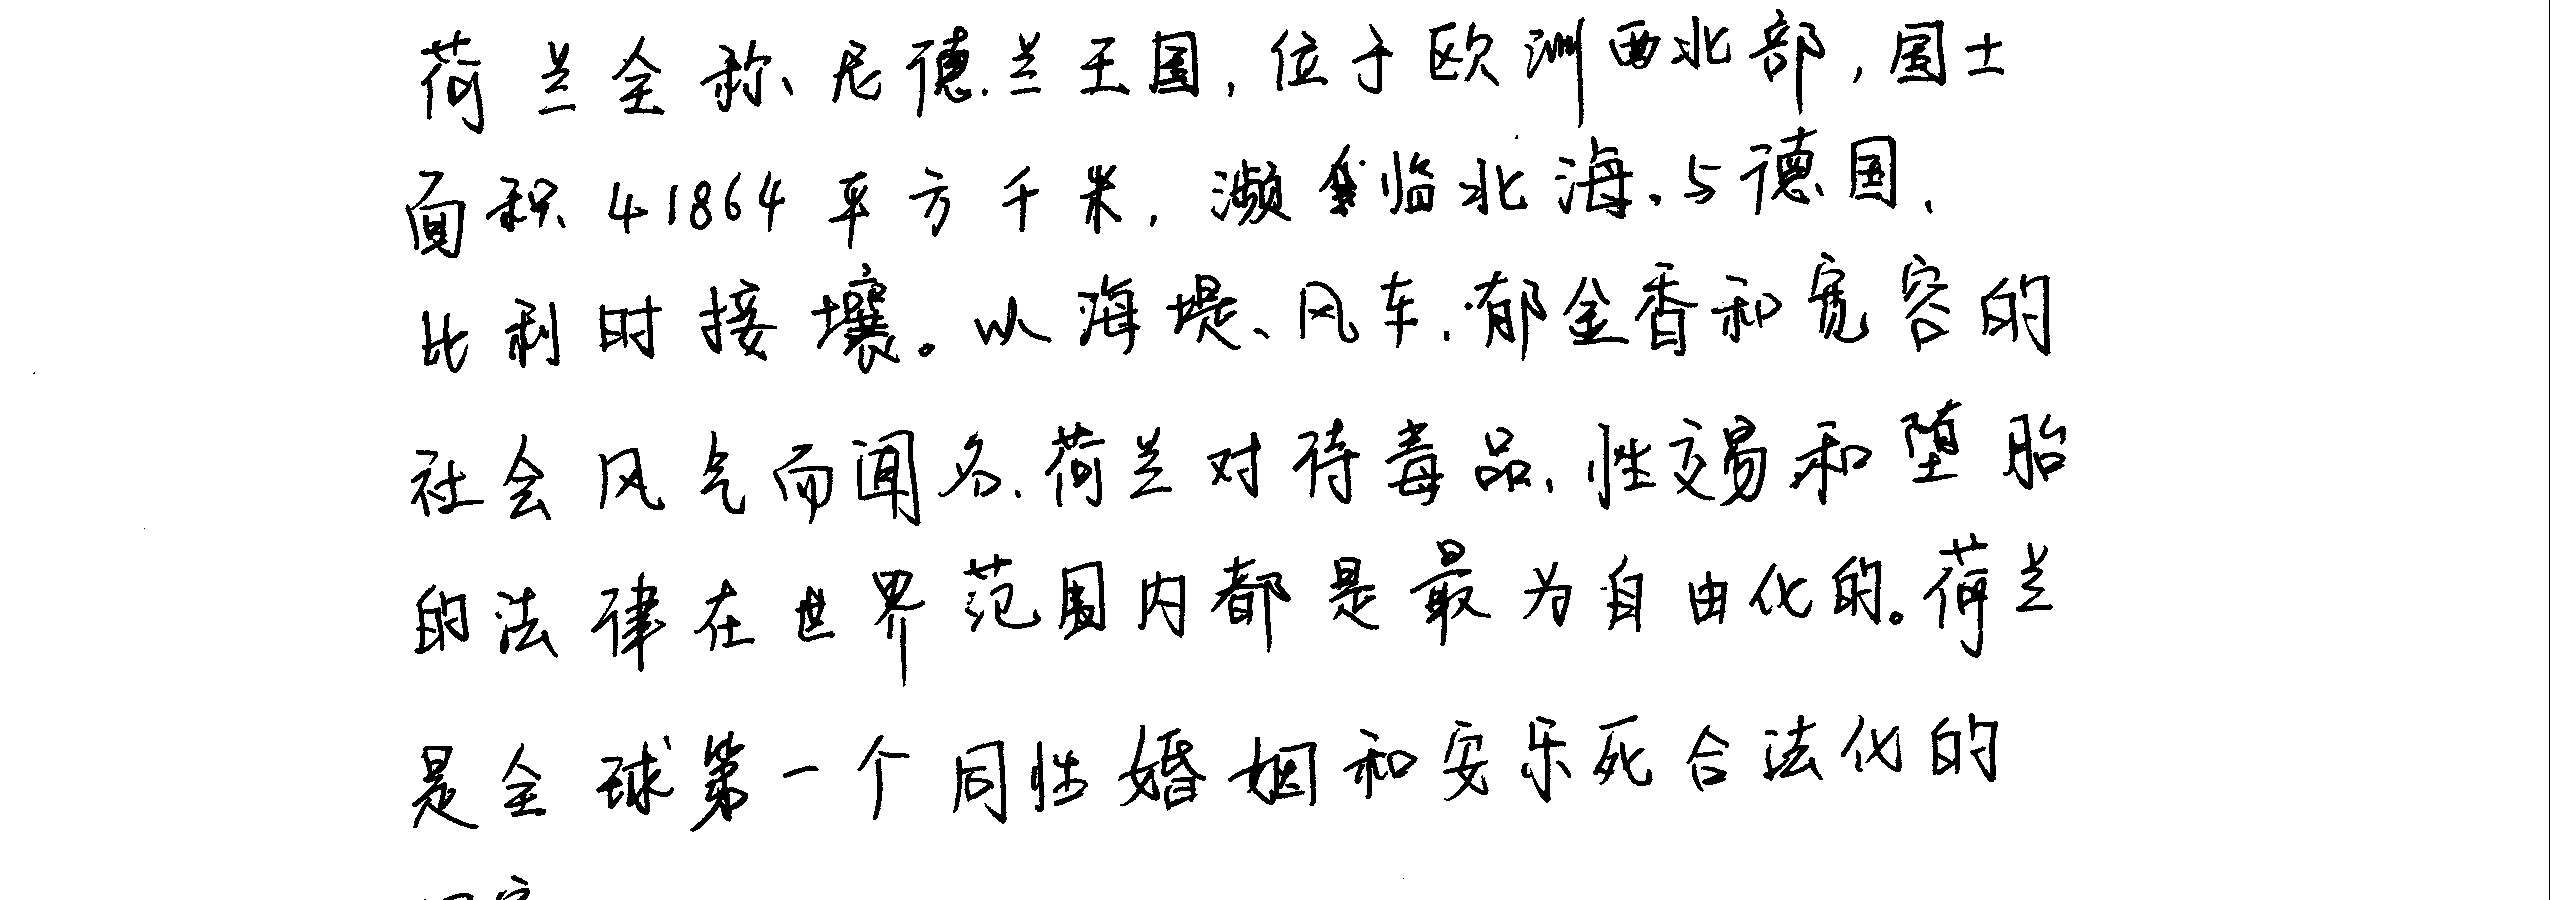 荷兰全称尼德兰王国,位于欧洲西北部,国土
面积41864平方千米,濒临北海、与德国、
比利时接壤。以海堤、风车、郁金香和宽容的
社会风气而闻名.荷兰对待毒品、性交易和堕胎
的法律在世界范围内都是最为自由化的。荷兰
是全球第一个同性婚姻和安乐死合法化的